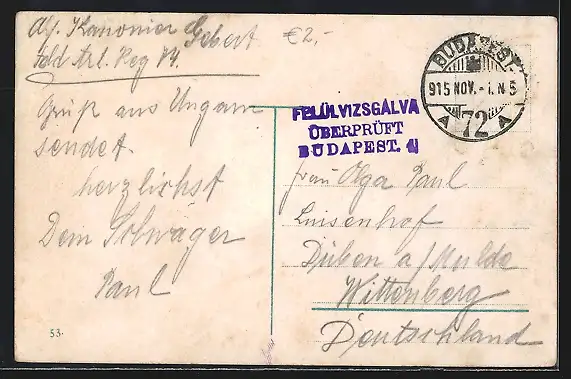 Abs. Kanonier Gebert
Feld Art. Reg 74.
€ 2,-
BUDAPEST.
915 NOV. -1. N 5
A 72 A
FELÜLVIZSGÁLVA
ÜBERPRÜFT
BUDAPEST. 4
Gruß aus Ungarn
sendet
herzlichst
Dein Schwager
Paul
53.
Frau Olga Paul
Luisenhof
Düben a/Mulde
Wittenberg
Deutschland